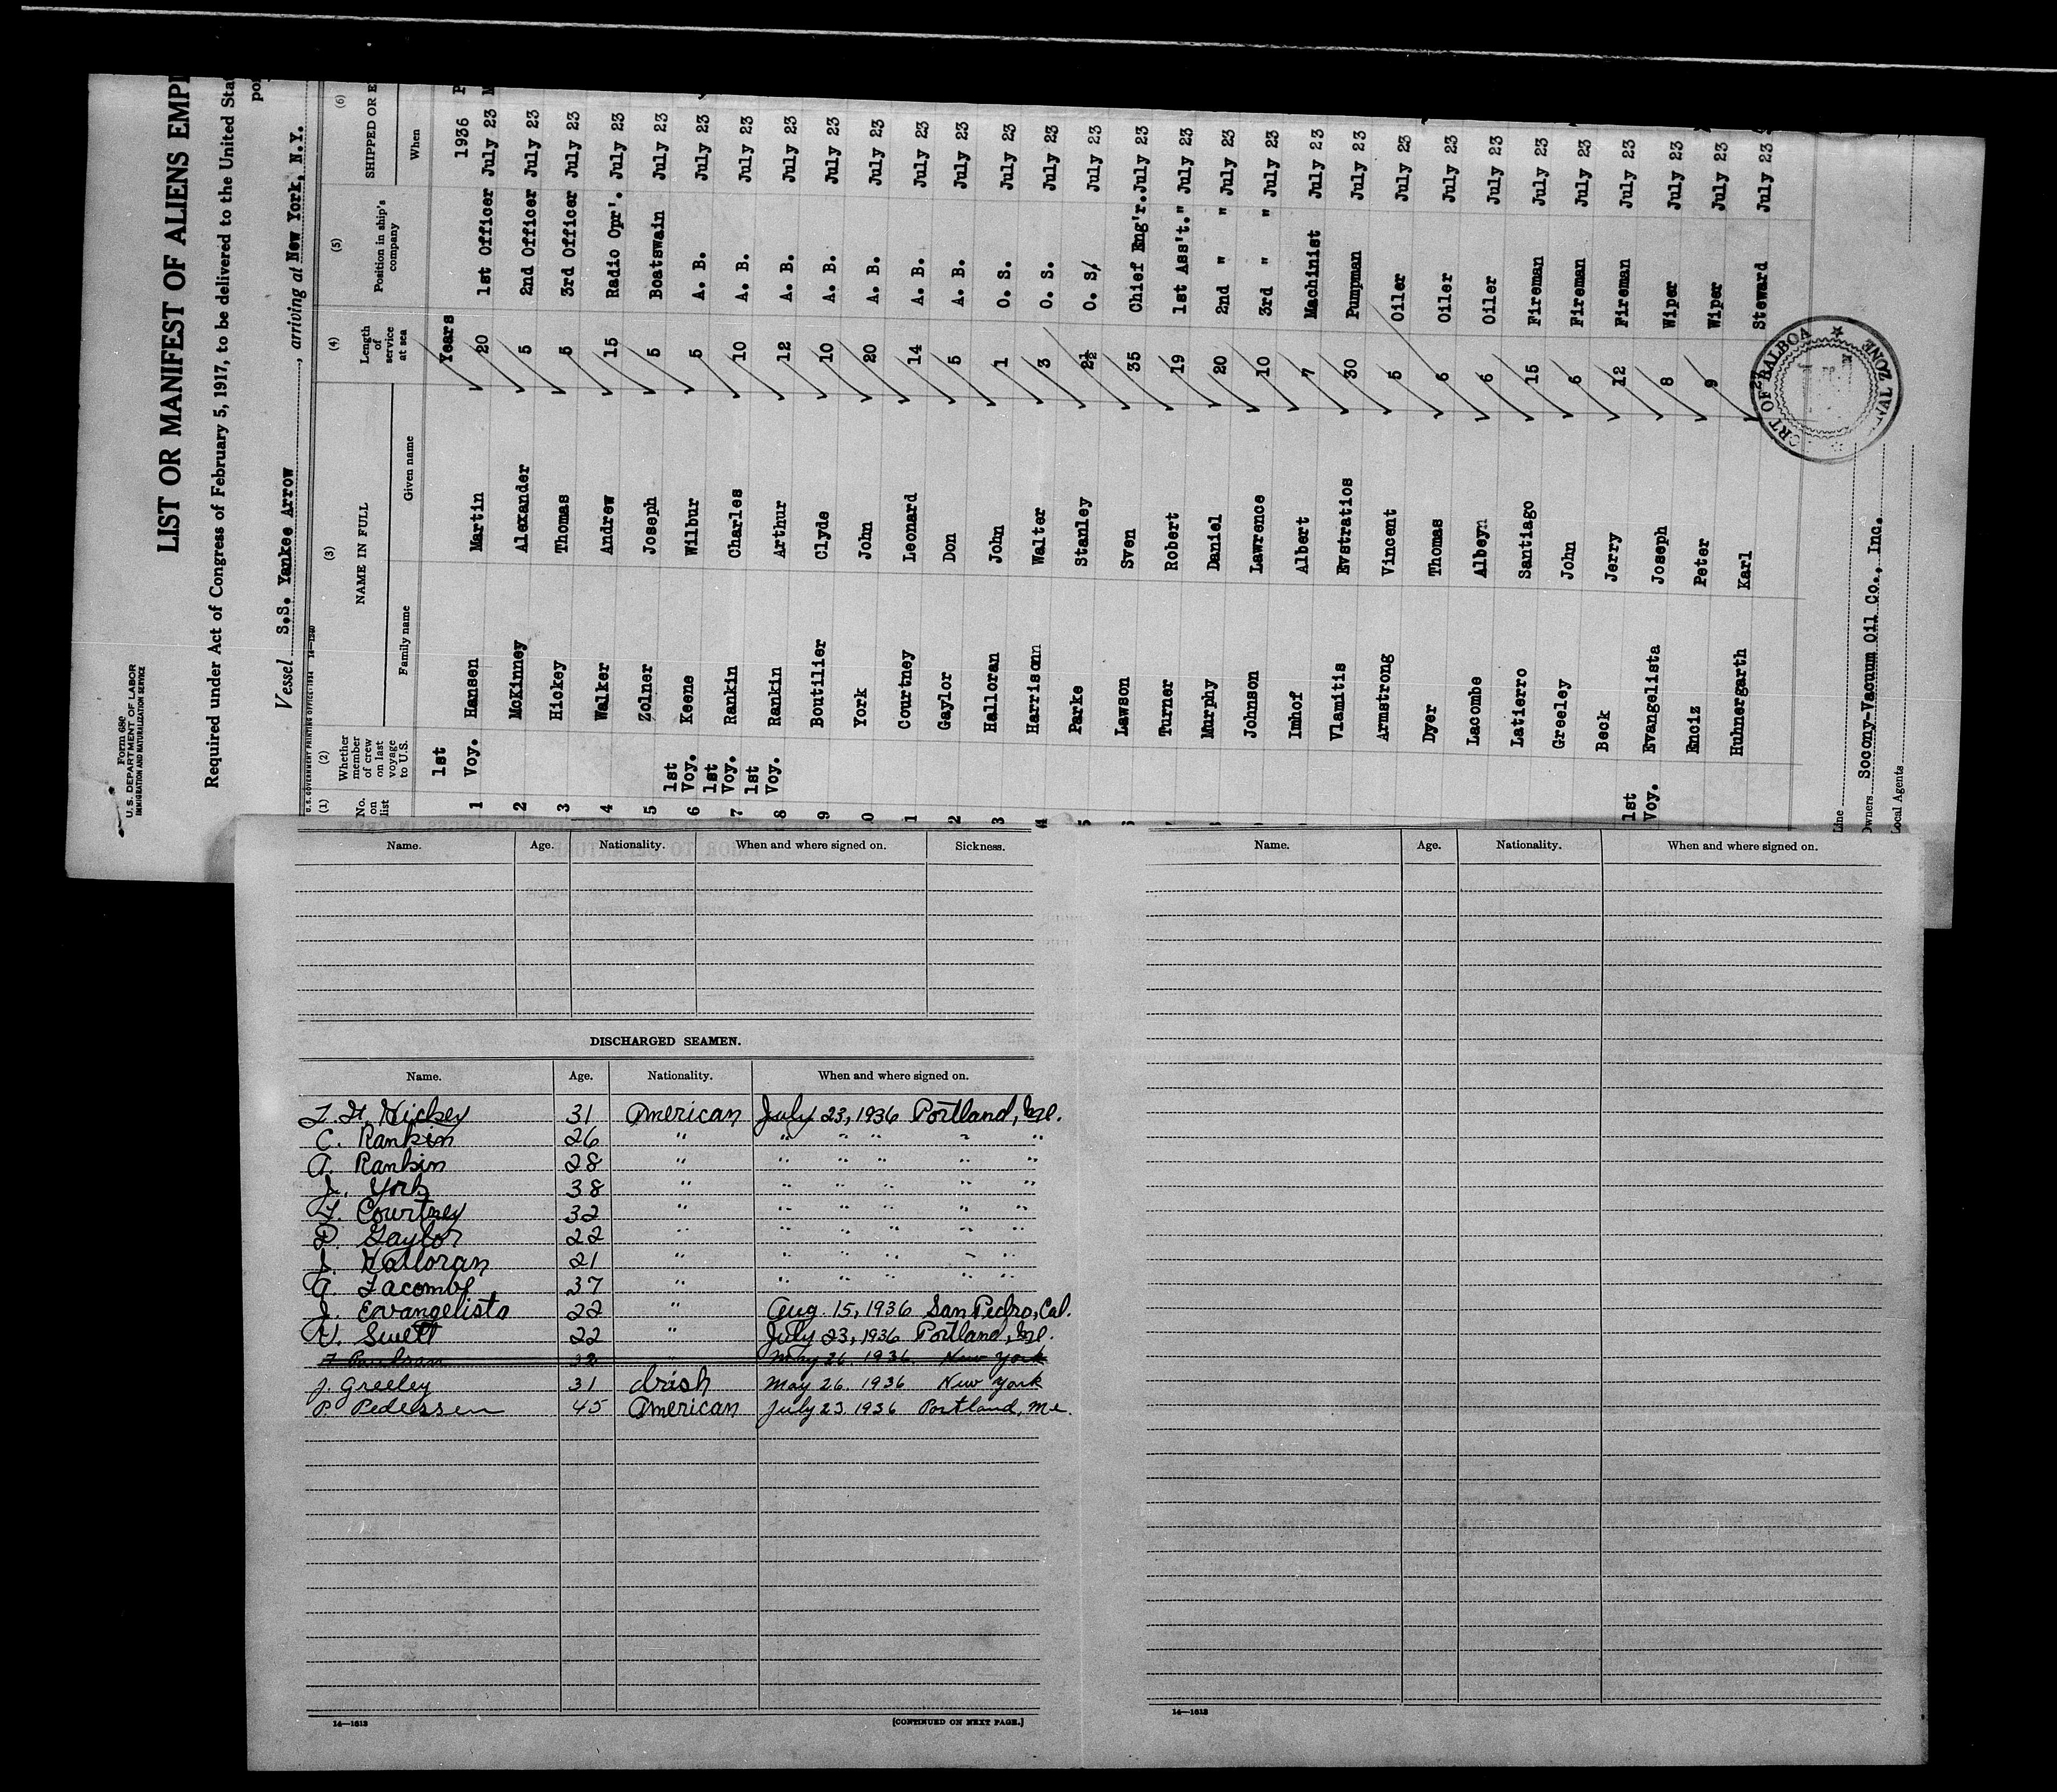 Form 680
U. S. DEPARTMENT OF LABOR
IMMIGRATION AND NATURALIZATION SERVICE
LIST OR MANIFEST OF ALIENS EMPL
Required under Act of Congress of February 5, 1917, to be delivered to the United Sta
po
Vessel S.S. Yankee Arrow, arriving at New York, N.Y.
U.S. GOVERNMENT PRINTING OFFICE: 1934 14—1240
(1) (2) (3) (4) (5) (6)
No. on list Whether member of crew on last voyage to U.S. NAME IN FULL Family name Given name Length of service at sea Position in ship's company SHIPPED OR E When
1st Years 1936 P
1 Voy. Hansen Martin 20 1st Officer July 23 M
2 McKinney Alexander 5 2nd Officer July 23
3 Hickey Thomas 5 3rd Officer July 23
4 Walker Andrew 15 Radio Opr'. July 23
5 Zolner Joseph 5 Boatswain July 23
6 1st Voy. Keene Wilbur 5 A. B. July 23
7 1st Voy. Rankin Charles 10 A. B. July 23
8 1st Voy. Rankin Arthur 12 A. B. July 23
9 Boutilier Clyde 10 A. B. July 23
0 York John 20 A. B. July 23
1 Courtney Leonard 14 A. B. July 23
2 Gaylor Don 5 A. B. July 23
3 Halloran John 1 O. S. July 23
4 Harrisonn Walter 3 O. S. July 23
5 Parke Stanley 2½ O. S/ July 23
Lawson Sven 35 Chief Eng'r. July 23
Turner Robert 19 1st Ass't. " July 23
Murphy Daniel 20 2nd " " July 23
Johnson Lawrence 10 3rd " " July 23
Imhof Albert 7 Machinist July 23
Vlamitis Evstratios 30 Pumpman July 23
Armstrong Vincent 5 Oiler July 23
Dyer Thomas 6 Oiler July 23
Lacombe Albeyn 6 Oiler July 23
Latierro Santiago 15 Fireman July 23
Greeley John 6 Fireman July 23
Beck Jerry 12 Fireman July 23
1st Voy. Evangelista Joseph 8 Wiper July 23
Enciz Peter 9 Wiper July 23
Huhnergarth Karl 27 Steward July 23
ORT OF BALBOA
CANAL ZONE
Line
Owners Socony-Vacuum Oil Co., Inc.
Local Agents
Name. Age. Nationality. When and where signed on. Sickness.
DISCHARGED SEAMEN.
Name. Age. Nationality. When and where signed on.
T. H. Hickey 31 American July 23, 1936 Portland, Me.
C. Rankin 26 " " " " " "
A. Rankin 28 " " " " " "
J. York 38 " " " " " "
L. Courtney 32 " " " " " "
D. Gaylor 22 " " " " " "
J. Halloran 21 " " " " " "
A. Lacombe 37 " " " " " "
J. Evangelista 22 " Aug. 15, 1936 San Pedro, Cal.
V. Swett 22 " July 23, 1936 Portland, Me.
32 " May 26 1936 New York
J. Greeley 31 Irish May 26. 1936 New York
P. Pedersen 45 American July 23 1936 Portland, Me.
14—1613 [CONTINUED ON NEXT PAGE.]
Name. Age. Nationality. When and where signed on.
14—1613